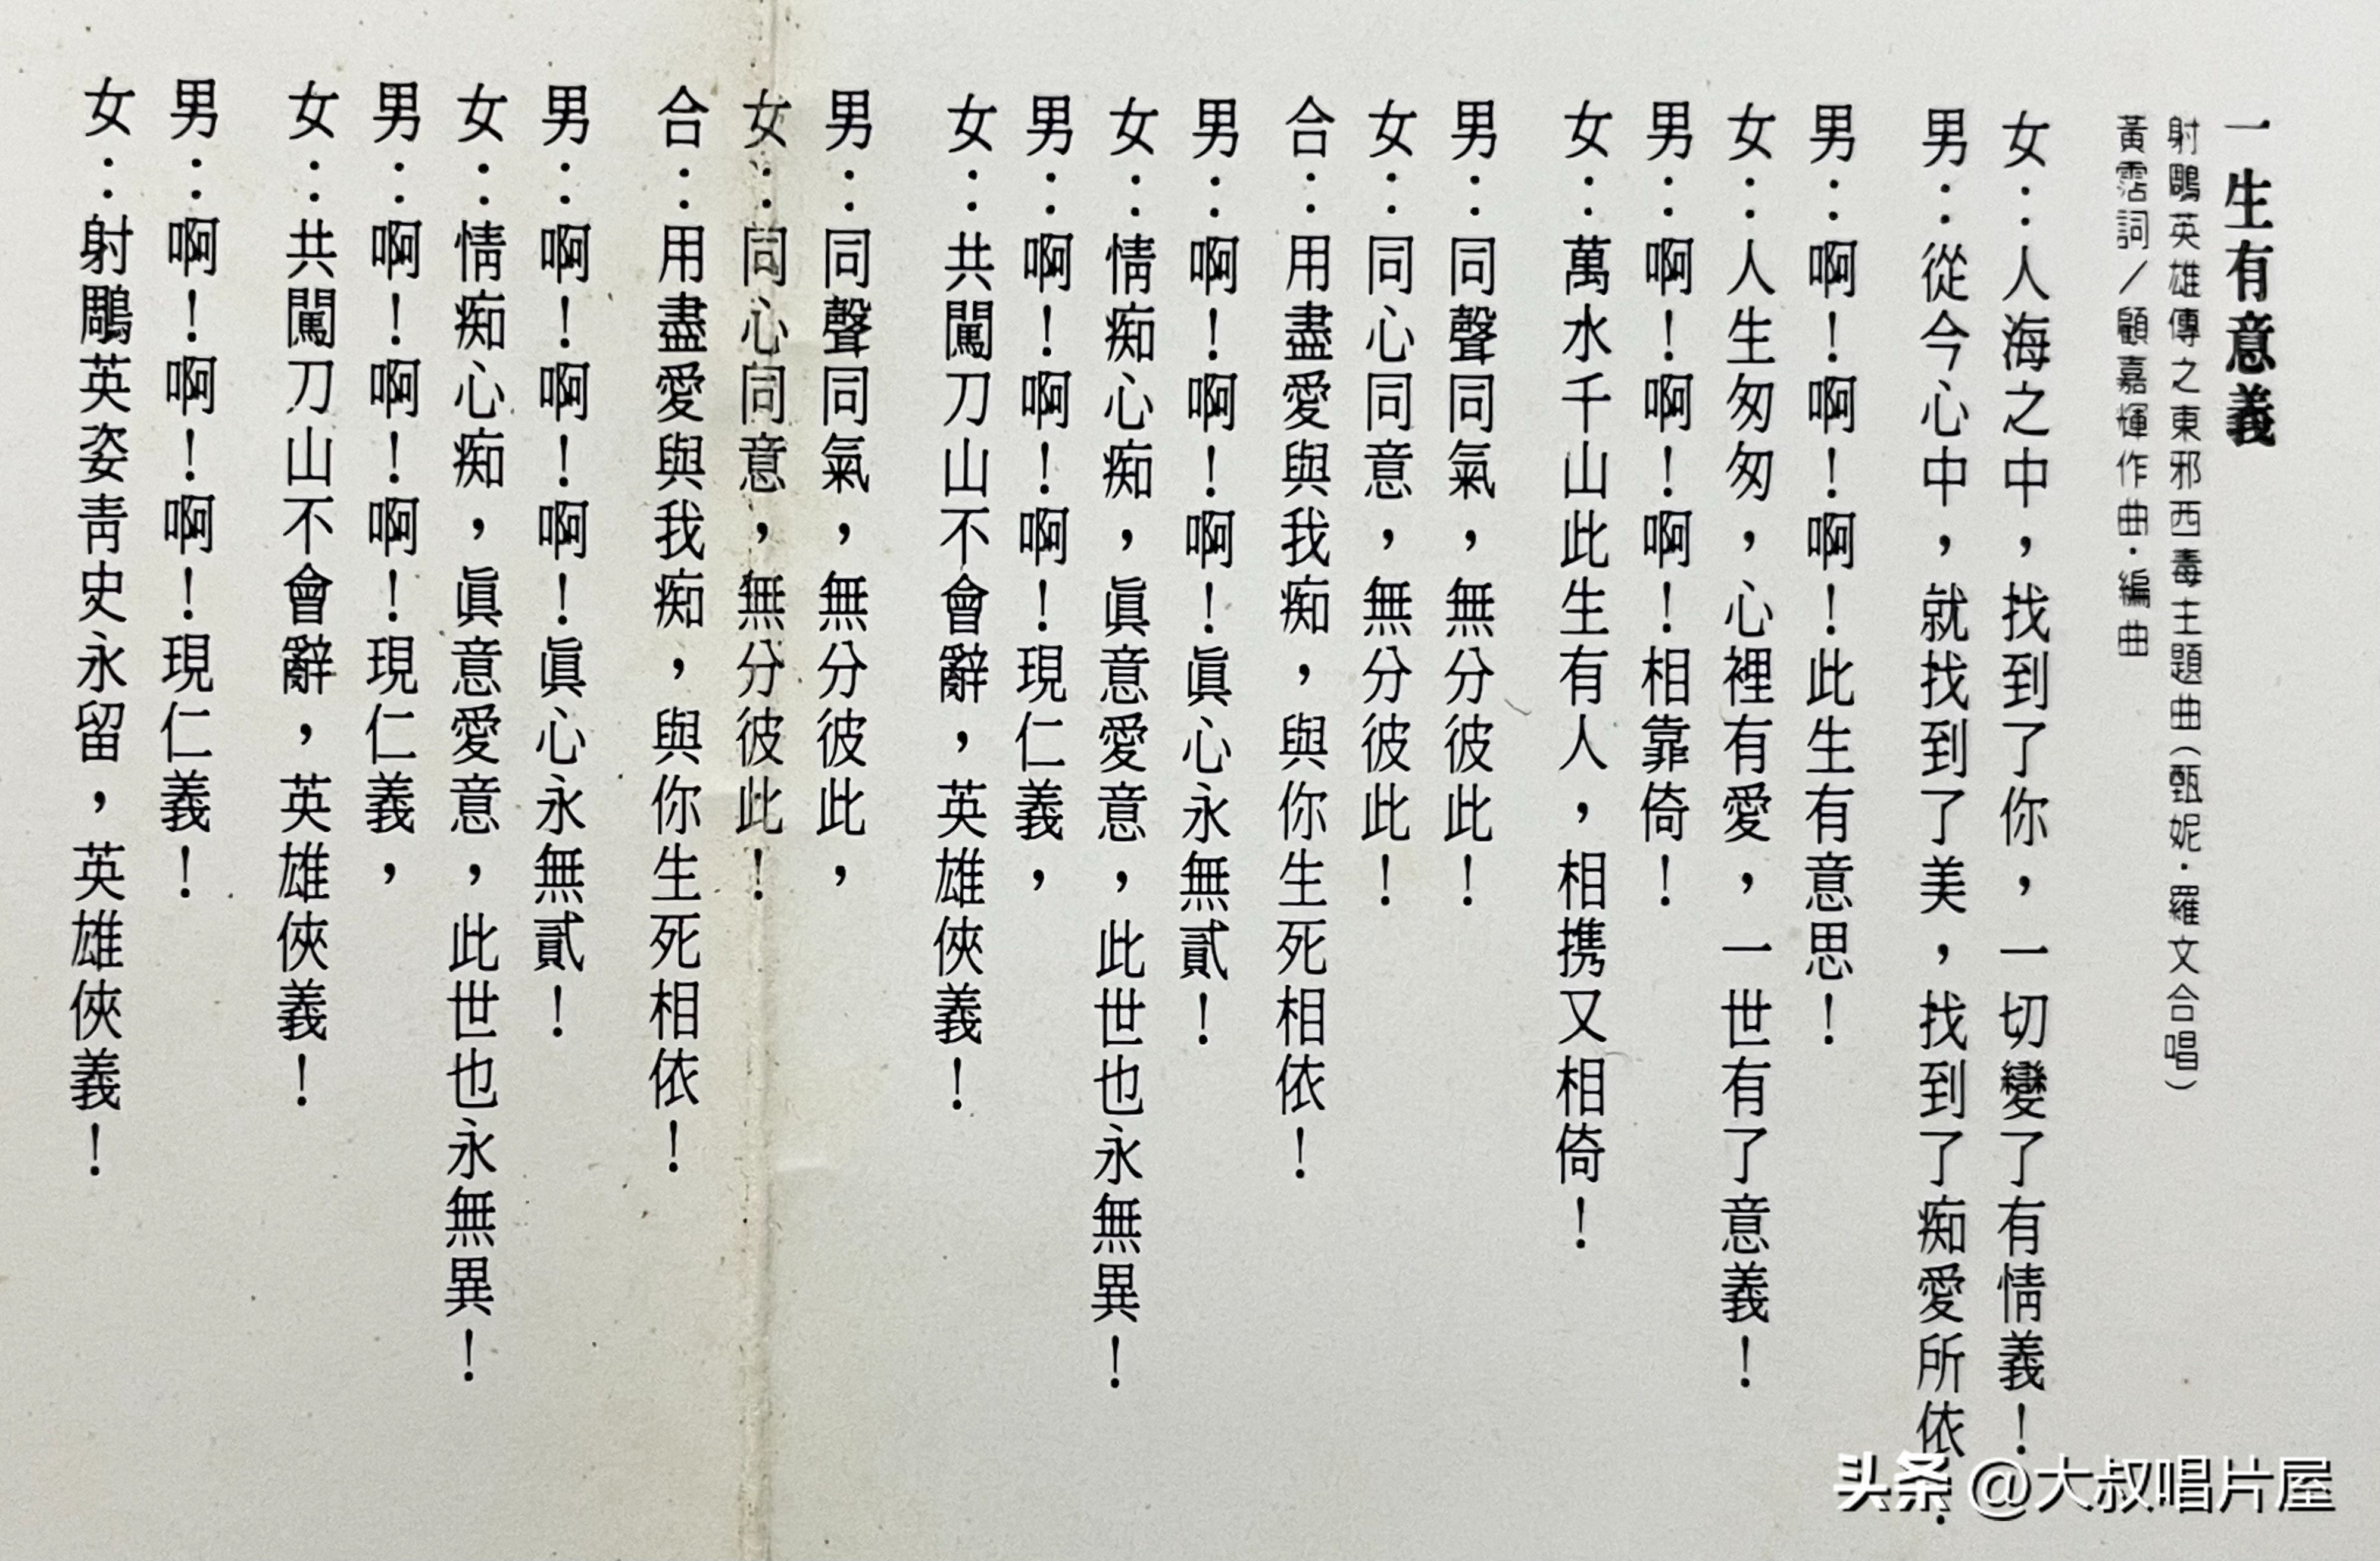 一生有意義
射鵰英雄傳之東邪西毒主題曲(甄妮·羅文合唱)
黃霑詞/顧嘉煇作曲·編曲
女:人海之中,找到了你,一切變了有情義!
男:從今心中,就找到了美,找到了痴愛所依
男:啊!啊!啊!此生有意思!
女:人生匆匆,心裡有愛,一世有了意義!
男:啊!啊!啊!相靠倚!
女:萬水千山此生有人,相携又相倚!
男:同聲同氣,無分彼此!
女:同心同意,無分彼此!
合:用盡愛與我痴,與你生死相依!
男:啊!啊!啊!眞心永無貳!
女:情痴心痴,眞意愛意,此世也永無異!
男:啊!啊!啊!現仁義,
女:共闖刀山不會辭,英雄俠義!
男:同聲同氣,無分彼此,
女:同心同意,無分彼此!
合:用盡愛與我痴,與你生死相依!
男:啊!啊!啊!眞心永無貳!
女:情痴心痴,眞意愛意,此世也永無異!
男:啊!啊!啊!現仁義,
女:共闖刀山不會辭,英雄俠義!
男:啊!啊!啊!現仁義!
女:射鵰英姿靑史永留,英雄俠義!
头条 @大叔唱片屋